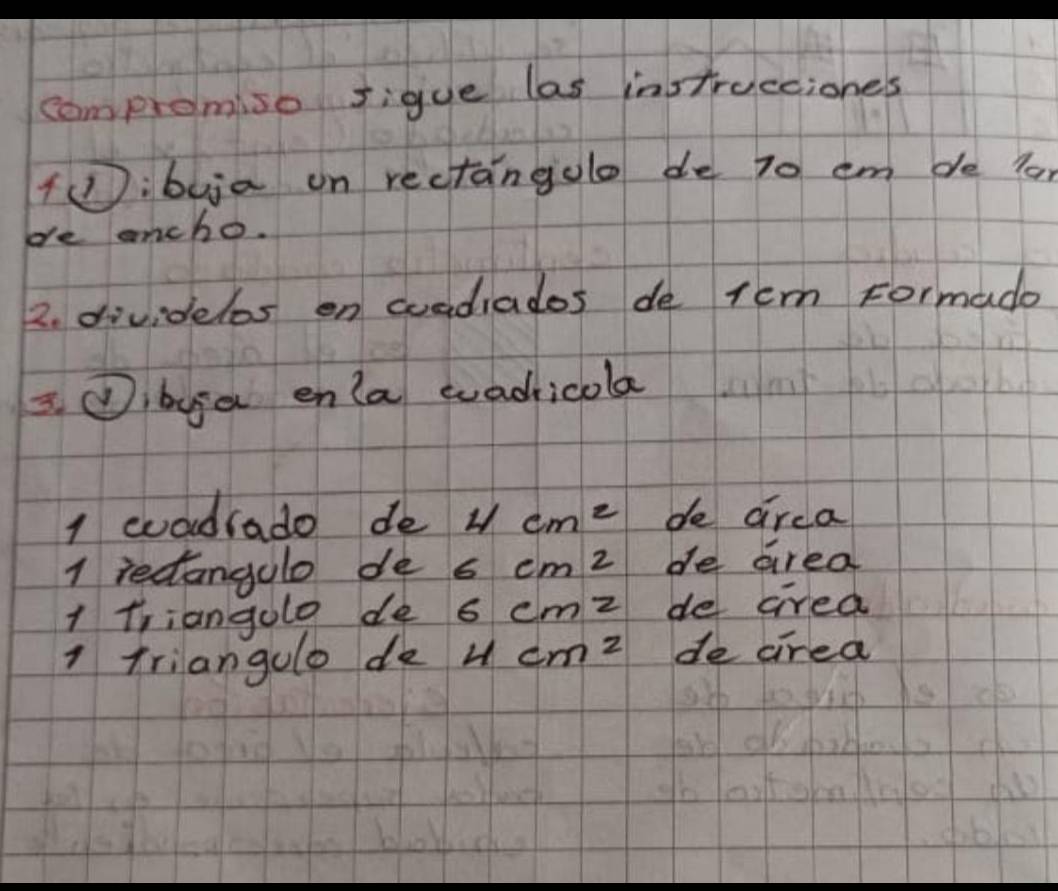 compromiso sigue las instrucciones
1 Dibuja un rectángulo de 10 cm de lar
de ancho.
2. dividelos en cuadrados de 1cm Formado
3. Dibuja en la cuadricola
1 cuadrado de 4 cm² de área
1 rectangulo de 6 cm² de área
1 Triangulo de 6 cm² de área
1 triangulo de 4 cm² de área